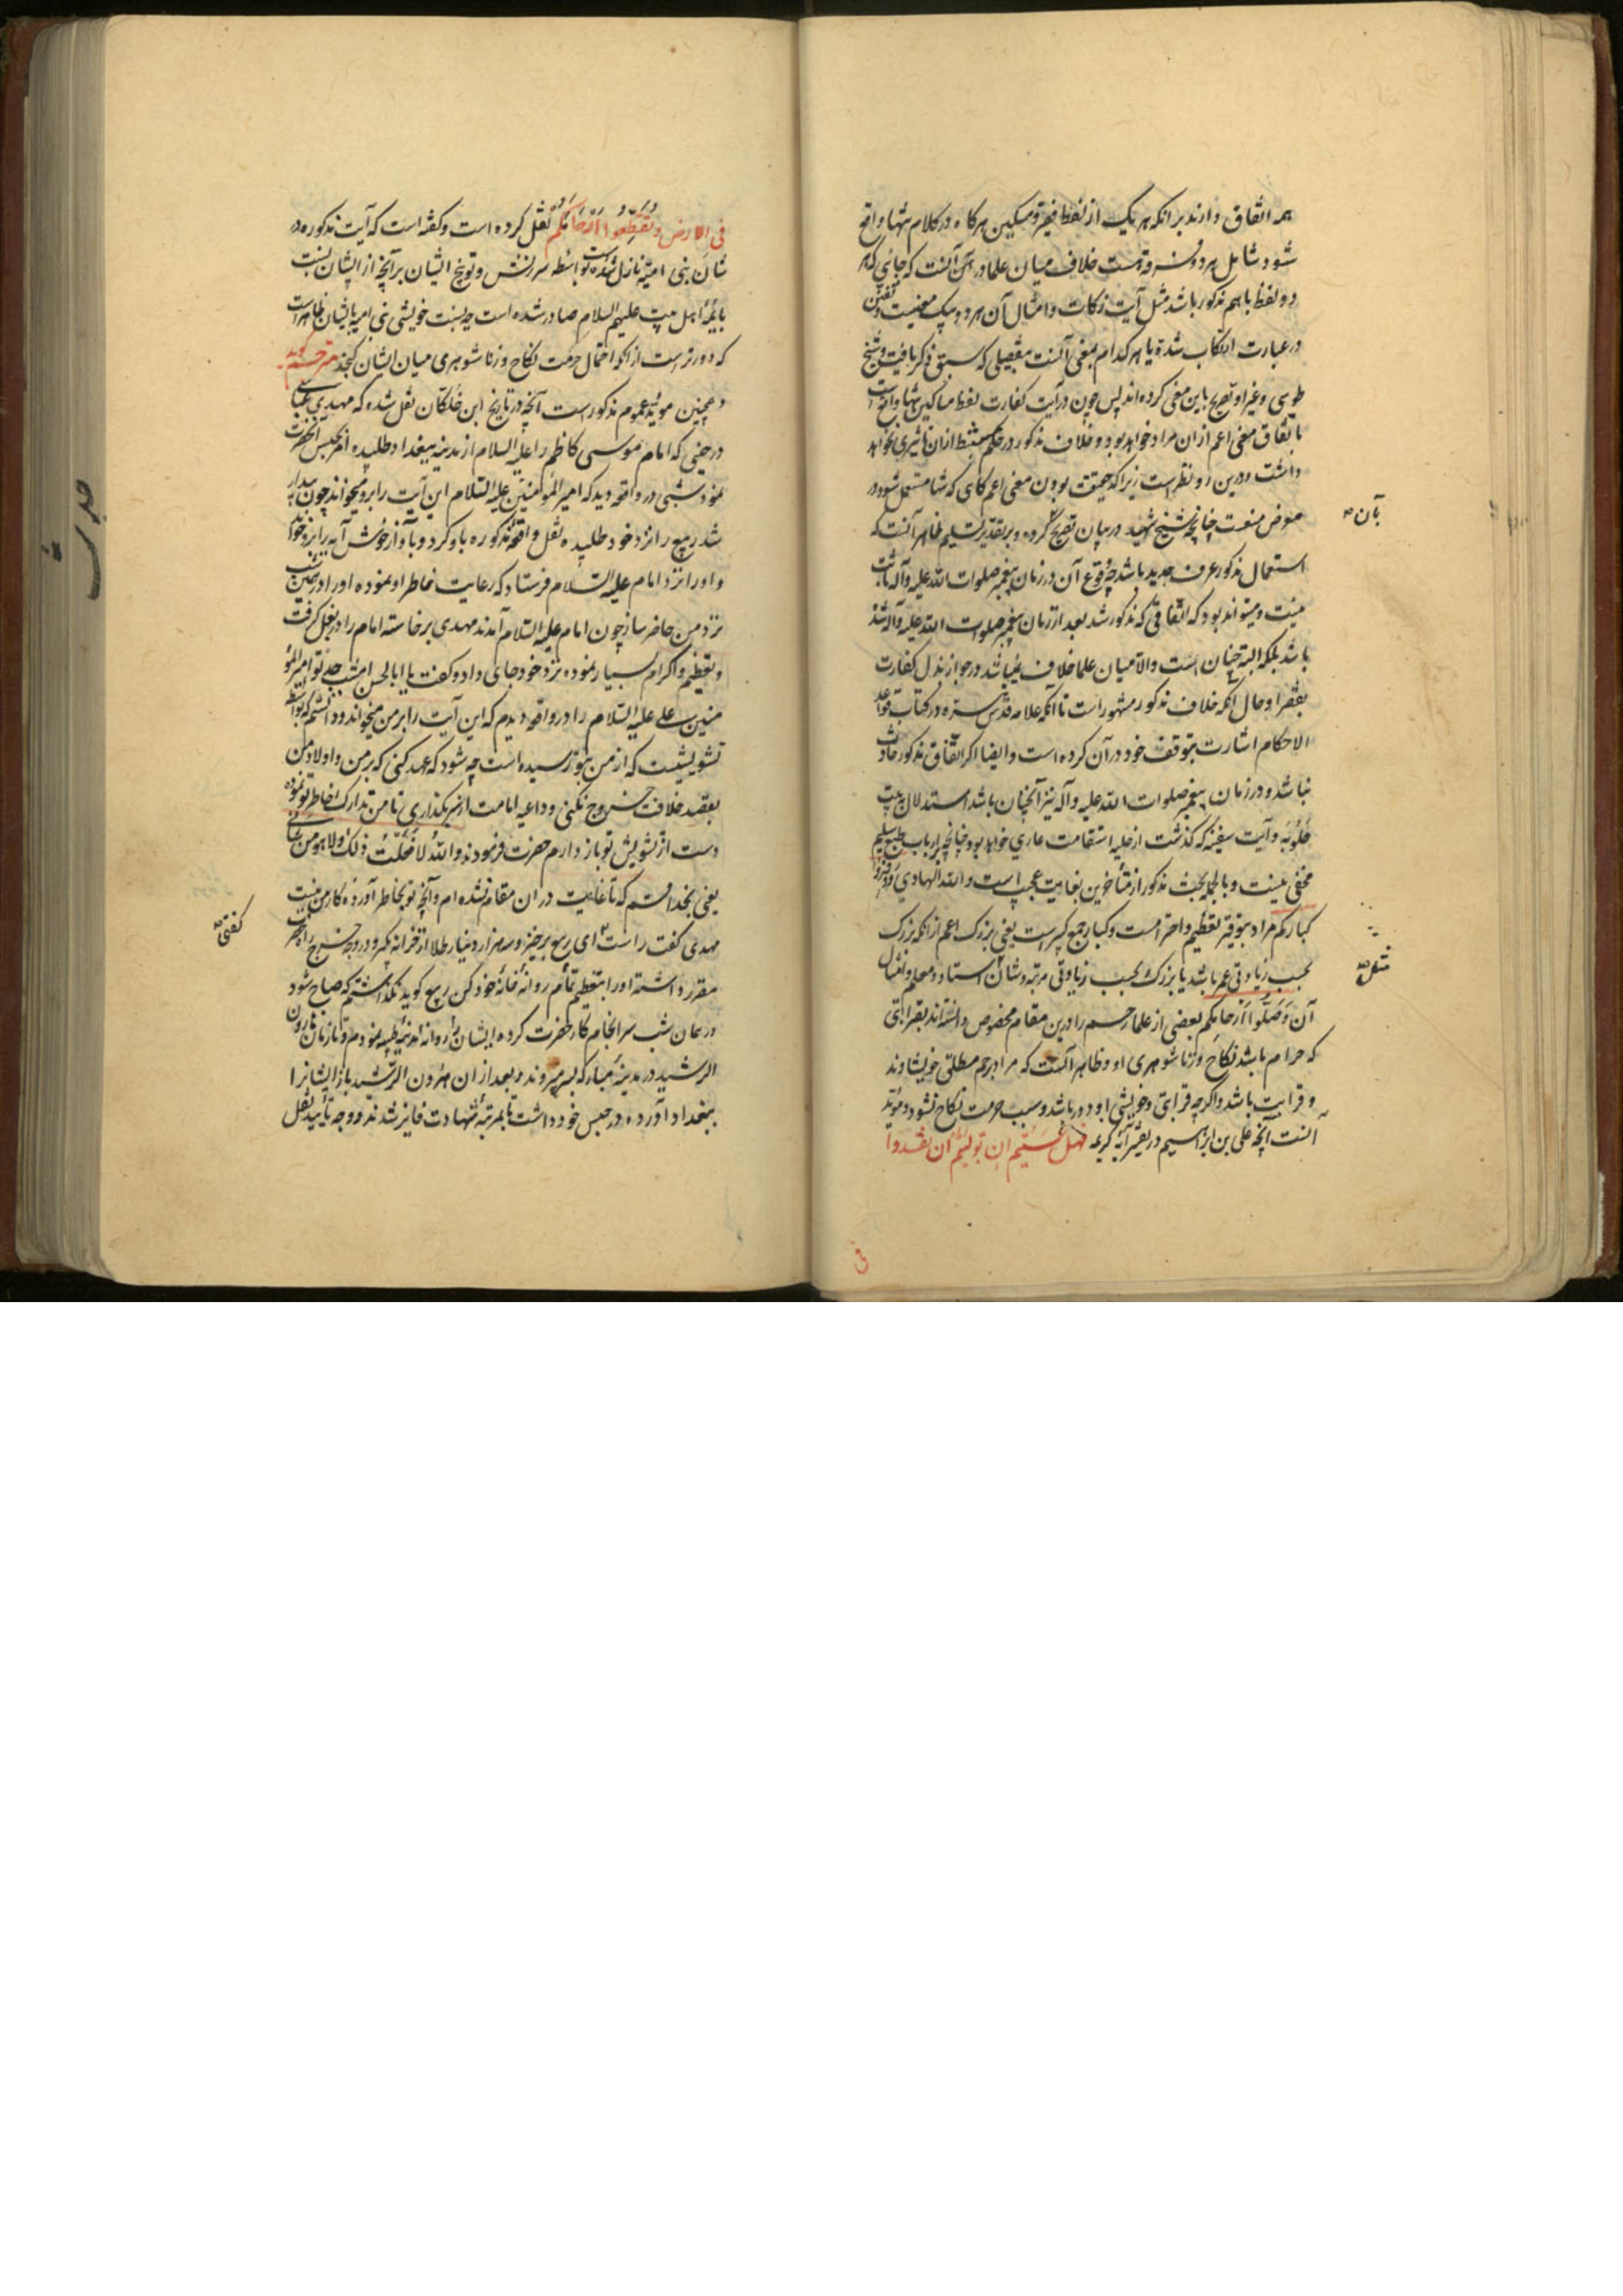 همه اتفاق دارند بر انکه هر یک از لفظ فقیر و مسکین هرکاه در کلام تنها واقع
شود شامل هر دو قسمت خلاف میان علما در آن آنست که جائی که هر
دو لفظ باهم مذکور باشد مثل آیت زکات و امثال آن هر دو بیک معنیست و تفنن
در عبارت ارتکاب شده یا هر کدام بمعنی آنست بتفصیلی که سبق ذکر یافت و شیخ
طوسی و غیر او تصریح باین معنی کرده اند پس چون در آیت کفارت لفظ مساکین تنها واقع است
باتفاق معنی اعم از ان مراد خواهد بود و خلاف مذکور در حکم ازان تاثیری نخواهد
داشت و درین رو نظرست زیرا که حقیقت بودن معنی اعم کاهی که تنها مستعمل شود در
معرض منعست چنانچه شیخ شهید در بیان تصریح کرده و بر تقدیر تسلیم ظاهر آنست که
بآن
استعمال مذکور عرف جدید باشد چه وقوع آن در زمان پیغمبر صلوات الله علیه و آله ثابت
نیست و میتواند بود که اتفاقی که مذکور شد بعد از زمان پیغمبر صلوات الله علیه و آله شده
باشد بلکه البته چنان است والا میان علما خلاف نمیباشد در جواز بذل کفارت
بفقرا و حال آنکه خلاف مذکور مشهور است تا آنکه علامه قدس سره در کتاب قواعد
الاحکام اشارت بتوقف خود در آن کرده است و ایضا اکر اتفاق مذکور حادث
نباشد و در زمان پیغمبر صلوات الله علیه و آله نیز آنچنان باشد استدلال ببیت
حلوبته و آیت سفینه که کذشت از حلیه استقامت عاری خواهد بود چنانچه بر ارباب طبع سلیم
مخفی نیست و بالجمله بحث مذکور از متأخرین بغایت عجیب است و الله الهادی وقروا
کبارکم مراد بتوقیر تعظیم و احترامست و کبار جمع کبیرست یعنی بزرک اعم از انکه بزرک
بحسب زیادتی عمر باشد یا بزرک بحسب زیادتی مرتبه و شان استاد و معلم و امثال
مثل
آن وَصِلُوا أَرْحامَکُم بعضی از علما رحم را درین مقام مخصوص دانسته اند بقرابتی
که حرام باشد نکاح و زناشوهری او و ظاهر آنست که مراد برحم مطلق خویشاوند
و قرابت باشد و اکرچه قرابتی و خویشی او دور باشد و سبب حرمت نکاح نشود و مؤید
آنست آنچه علی بن ابراهیم در تفسیر آیه کریمه فهل عسیتم ان تولیتم ان تفسدوا
فی
فی الارض و تقطعوا ارحامکم نقل کرده است و کفته است که آیت مذکوره در
شان بنی امیه نازل شده است بواسطه سرزنش و توبیخ ایشان بر آنچه از ایشان نسبت
بایمه اهل بیت علیهم السلام صادر شده است چه نسبت خویشی بنی امیه بایشان ظاهرست
که دورترست از انکه احتمال حرمت نکاح و زناشوهری میان ایشان کنجد مترجم کوید
همچنین موید عموم مذکورست آنچه در تاریخ ابن خلکان نقل شده که مهدی عباسی
در حینی که امام موسی کاظم را علیه السلام از مدینه ببغداد طلبیده امر بحبس آنحضرت
نمود شبی در واقعه دید که امیر المؤمنین علیه السلام این آیت را برو میخواند چون بیدار
شد ربیع را نزد خود طلبیده نقل واقعه مذکوره باو کرد و بآواز خوش آیه را برو خواند
و او را نزد امام علیه السلام فرستاد که رعایت خاطر او نموده او را در همین شب
نزد من حاضر ساز چون امام علیه السلام آمدند مهدی برخاسته امام را در بغل کرفت
و تعظیم و اکرام بسیار نموده نزد خود جای داد و کفت یا ابا الحسن امشب جد تو امیر المؤ
منین علی علیه السلام را در واقعه دیدم که این آیت را بر من میخواند و دانستم که بواسطه
تشویشیست که از من بتو رسیده است چه شود که عهد کنی که بر من و اولاد من
بقصد خلافت خروج نکنی و داعیه امامت از سر بکذاری تا من تدارک خاطر تو نموده
دست از تشویش تو باز دارم حضرت فرمودند والله لا فعلت ذلک ولا هو من شانی
یعنی بخدا قسم که تا غایت در ان مقام نشده ام و آنچه تو بخاطر آورده کار من نیست
کفتی
مهدی کفت راست ای ربیع برخیز و سه هزار دینار طلا از خزانه بکیر و در وجه خرج راه آنحضرت
مقرر داشته او را بتعظیم تمام روانه خانه خود کن ربیع کوید نکذاشتم که صباح شود
در همان شب سرانجام کار حضرت کرده ایشان را روانه مدینه طیبه نمودم و تا زمان هارون
الرشید در مدینه مبارکه بسر میبردند و بعد از ان هارون الرشید باز ایشانرا
ببغداد آورده در حبس خود داشت تا بمرتبه شهادت فایز شدند و وجه تأیید نقل